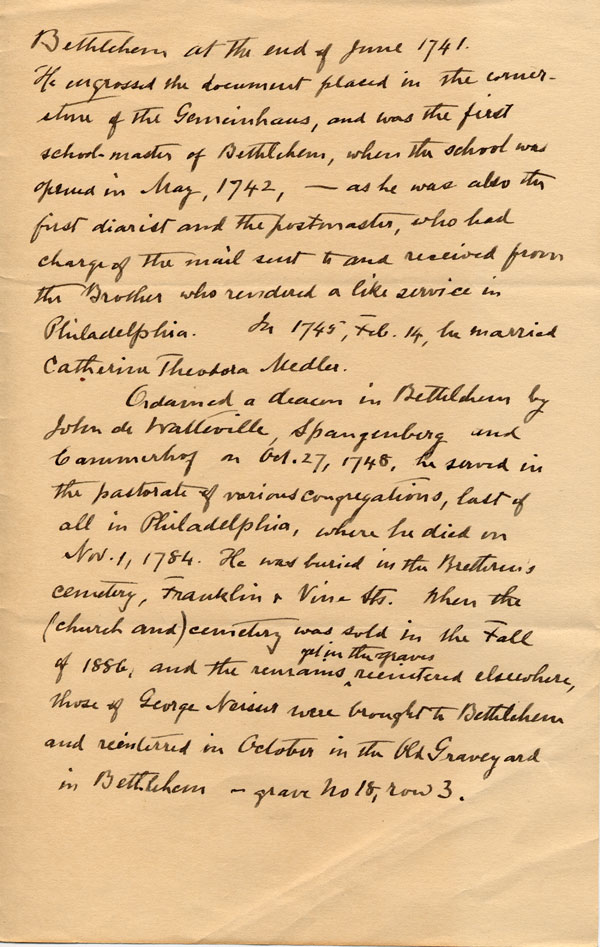 Bethlehem at the end of June 1741.
He engrossed the document placed in the corner-
stone of the Gemeinhaus, and was the first
school-master of Bethlehem, when the school was
opened in May, 1742, — as he was also the
first diarist and the postmaster, who had
charge of the mail sent to and received from
the Brother who rendered a like service in
Philadelphia. In 1745, Feb. 14, he married
Catherina Theodora Medler.
Ordained a deacon in Bethlehem by
John de Watteville, Spangenberg and
Cammerhof on Oct. 27, 1748, he served in
the pastorate of various congregations, last of
all in Philadelphia, where he died on
Nov. 1, 1784. He was buried in the Brethren's
cemetery, Franklin & Vine Sts. When the
(church and) cemetery was sold in the Fall
yet in the graves
of 1886, and the remains ^ reinterred elsewhere,
those of George Neisser were brought to Bethlehem
and reinterred in October in the Old Graveyard
in Bethlehem — grave No 18, row 3.